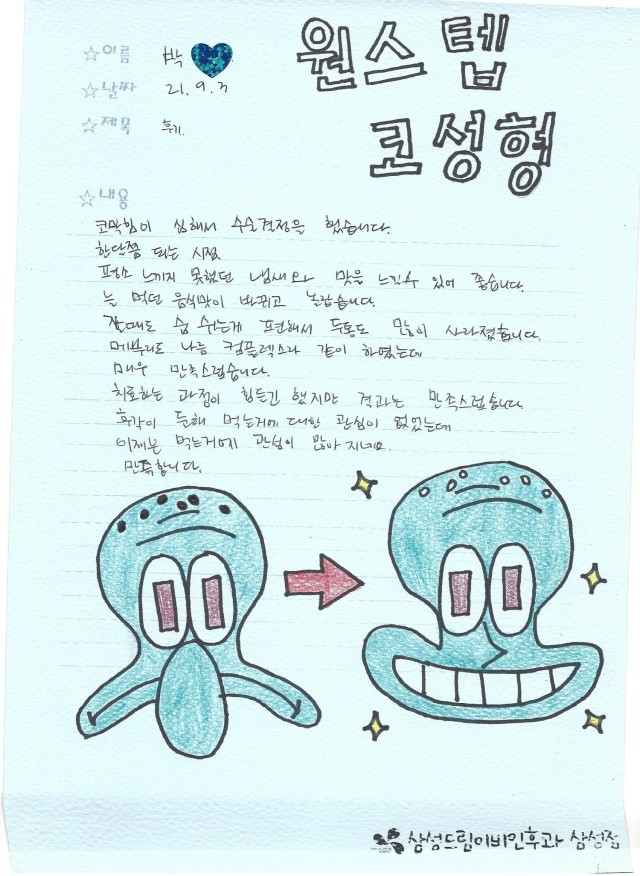 원스텝
코성형
☆이름 박
☆날짜 21. 9. 3
☆제목 후기.
☆내용
코막힘이 심해서 수술결정을 했습니다.
한달쯤 되는 시점
평소 느끼지 못했던 냄새와 맛을 느낄수 있어 좋습니다.
늘 먹던 음식맛이 바뀌고 놀랍습니다.
잘때도 숨 쉬는게 편해서 두통도 많이 사라졌습니다.
메부리도 나름 컴플렉스라 같이 하였는데
매우 만족스럽습니다.
치료하는 과정이 힘든긴 했지만 결과는 만족스럽습니다.
후각이 둔해 먹는거에 대한 관심이 없었는데
이제는 먹는거에 관심이 많아 지네요.
만족합니다.
삼성드림이비인후과 삼성점